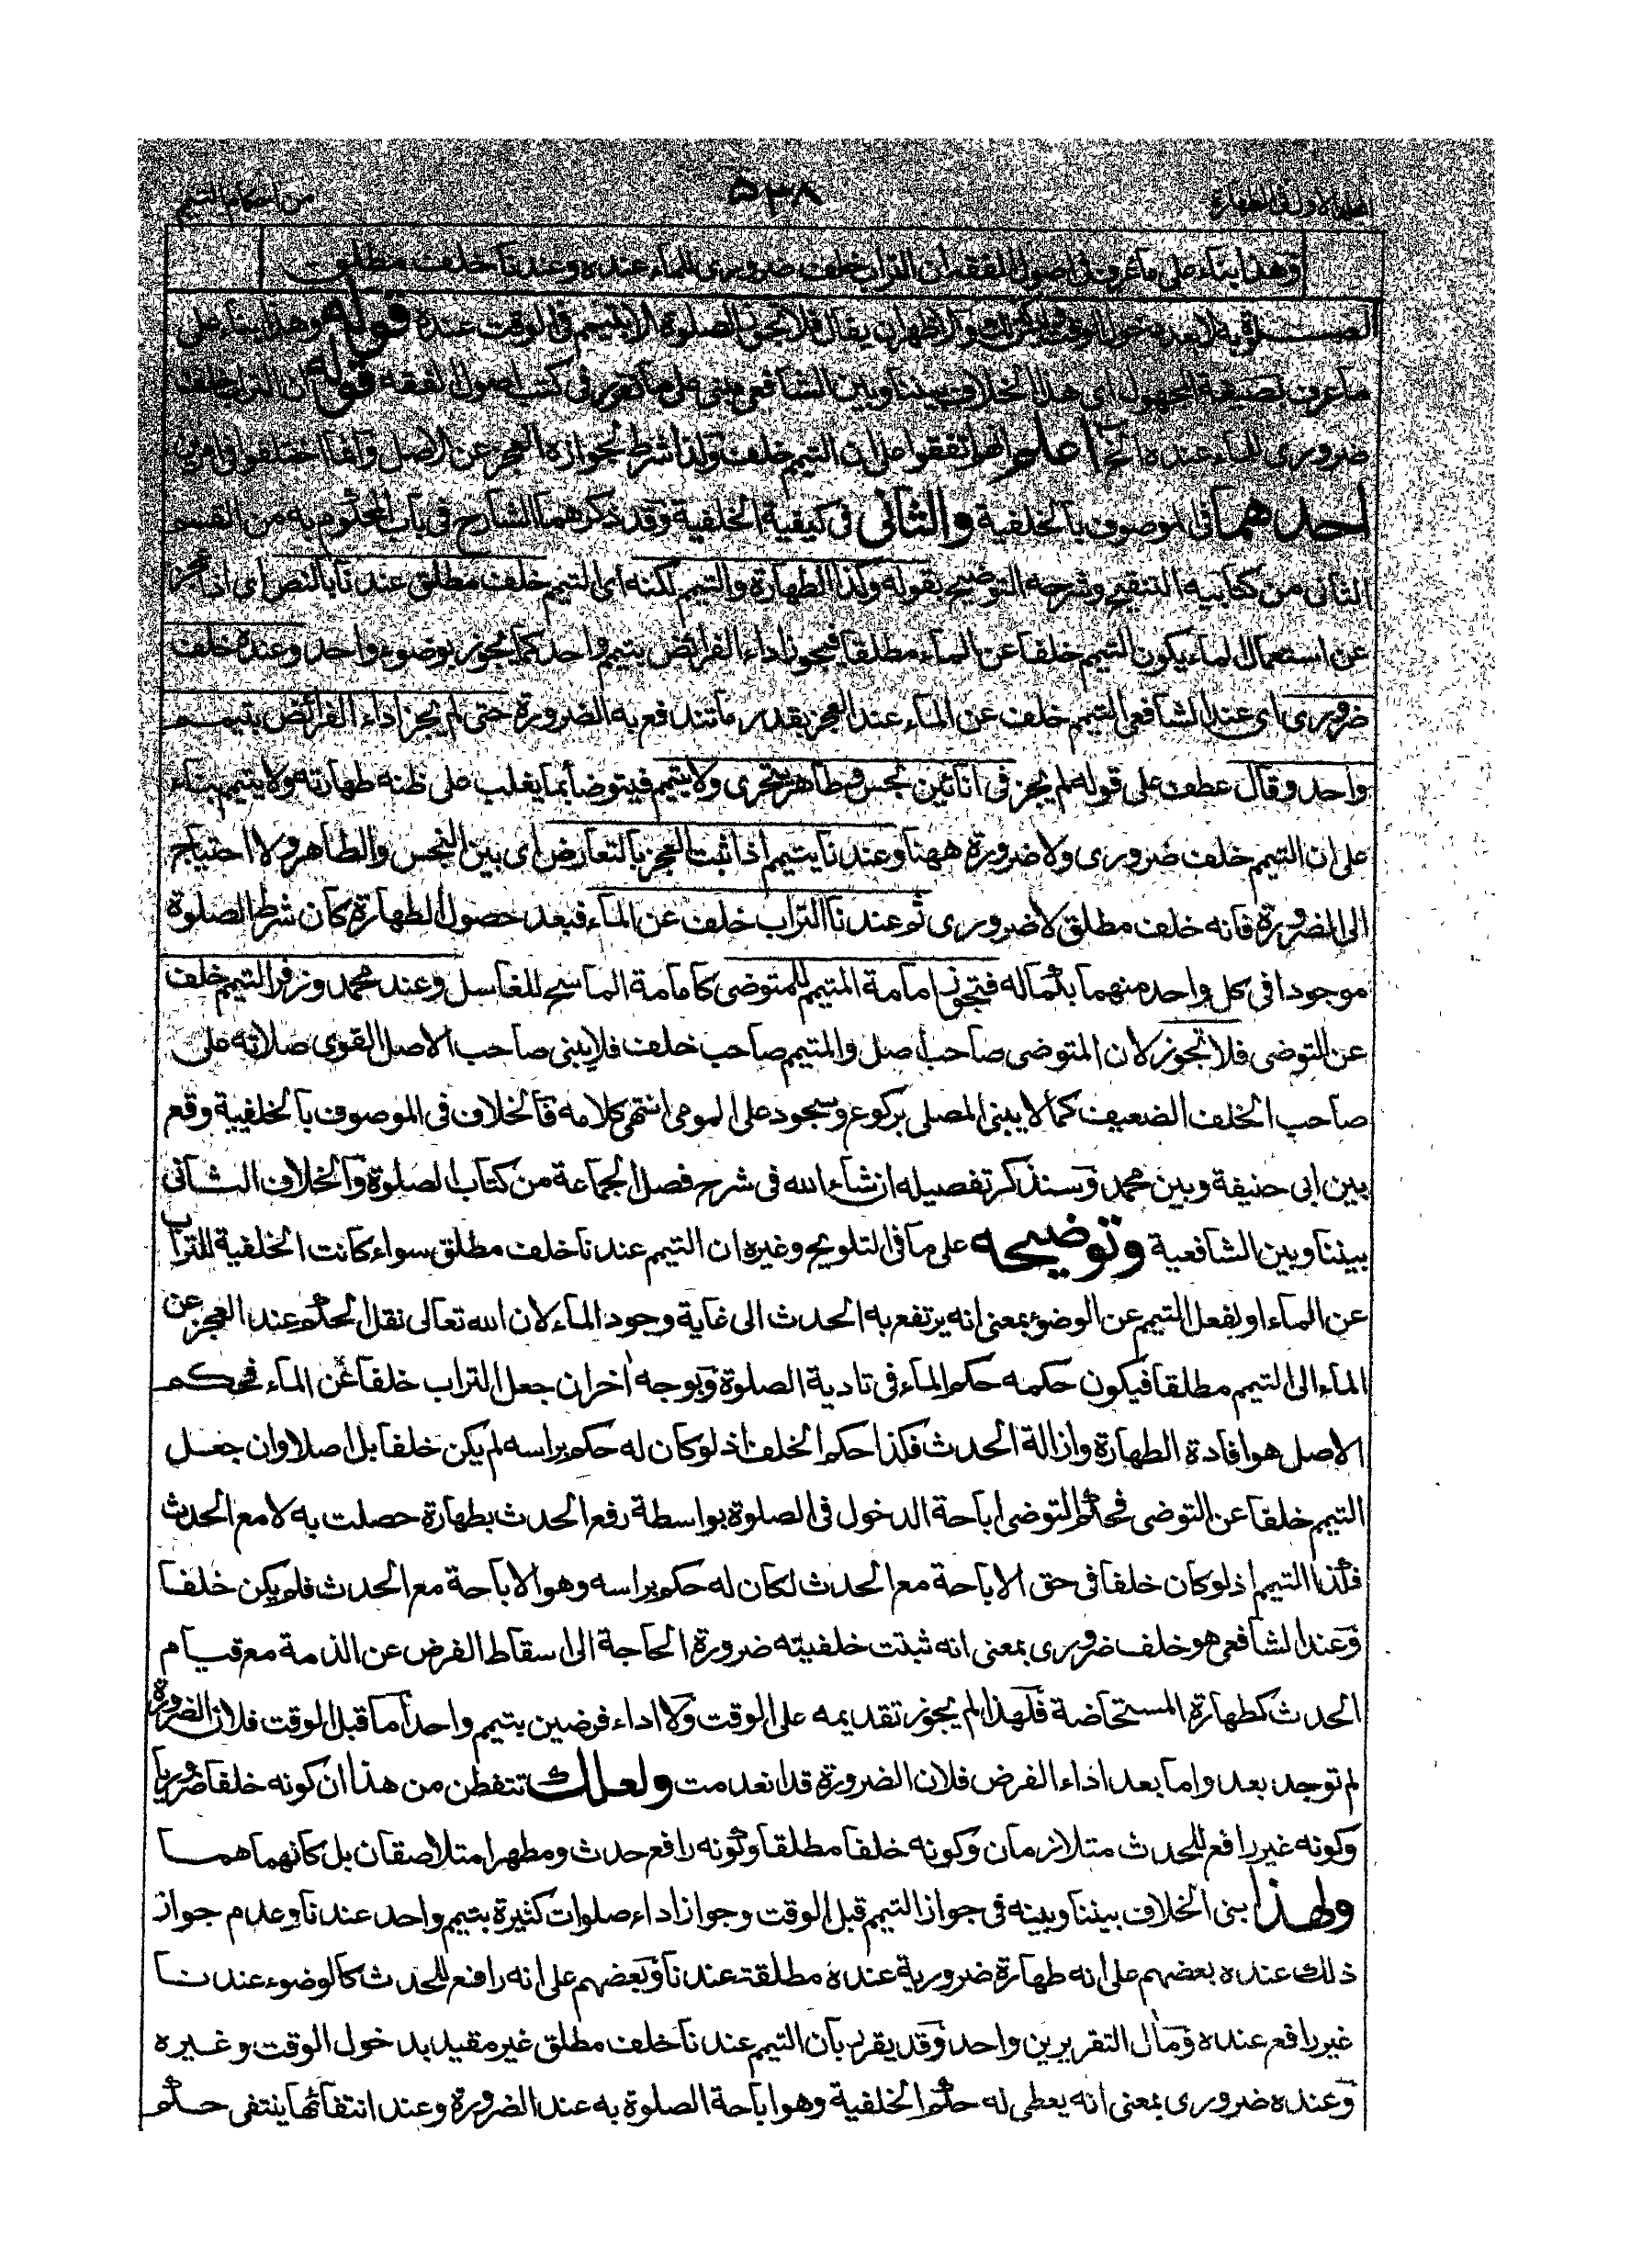 من احكام التيمم
٥٣٨
المجلد الاول فى الطهارة
وهذا بناء على ما عرف فى اصول الفقه ان التراب خلف ضرورى للماء عنده وعندنا خلف مطلق
به لا بعد دخول الوقت والاظهر ان يقال فلا تجوز الصلوة الا بتيمم فى الوقت عنده قوله وهذا بناء على
ما عرف بصيغة المجهول اى هذا الخلاف بيننا وبين الشافعى مبنى على ما تقرر فى كتب اصول الفقه قوله ان التراب خلف
ضرورى للماء عنده الخ اعلم انهم اتفقوا على ان التيمم خلف ولذا شرط لجوازه العجز عن الاصل وانما اختلفوا فى امرين
احدهما فى الموصوف بالخلفية والثانى فى كيفية الخلفية وقد ذكرهما الشارح فى باب المحكوم به من القسم
الثانى من كتابيه التنقيح وشرحه التوضيح بقوله وكذا الطهارة والتيمم لكنه اى التيمم خلف مطلق عندنا بالنص اى اذا عجز
عن استعمال الماء يكون التيمم خلفا عن الماء مطلقا فيجوز اداء الفرائض بتيمم واحد كما يجوز بوضوء واحد وعنده خلف
ضرورى اى عند الشافعى التيمم خلف عن الماء عند العجز بقدر ما تندفع به الضرورة حتى لم يجز اداء الفرائض بتيمم
واحد وقال عطف على قوله لم يجز فى انائين نجس وطاهر يتحرى ولا يتيمم فيتوضأ بما يغلب على ظنه طهارته ولا يتيمم بناء
على ان التيمم خلف ضرورى ولا ضرورة ههنا وعندنا يتيمم اذا ثبت العجز بالتعارض اى بين النجس والطاهر ولا احتياج
الى الضرورة فانه خلف مطلق لا ضرورى ثم عندنا التراب خلف عن الماء فبعد حصول الطهارة كان شرط الصلوة
موجودا فى كل واحد منهما بكماله فتجوز امامة المتيمم للمتوضى كامامة الماسح للغاسل وعند محمد وزفر التيمم خلف
عن التوضى فلا تجوز لان المتوضى صاحب اصل والمتيمم صاحب خلف فلا يبنى صاحب الاصل القوى صلاته على
صاحب الخلف الضعيف كما لا يبنى المصلى بركوع وسجود على المومى انتهى كلامه فالخلاف فى الموصوف بالخلفية وقع
بين ابى حنيفة وبين محمد وسنذكر تفصيله ان شاء الله فى شرح فصل الجماعة من كتاب الصلوة والخلاف الثانى
بيننا وبين الشافعية وتوضيحه على ما فى التلويح وغيره ان التيمم عندنا خلف مطلق سواء كانت الخلفية للتراب
عن الماء او لفعل التيمم عن الوضوء بمعنى انه يرتفع به الحدث الى غاية وجود الماء لان الله تعالى نقل الحكم عند العجز عن
الماء الى التيمم مطلقا فيكون حكمه حكم الماء فى تادية الصلوة وبوجه اخر ان جعل التراب خلفا عن الماء فحكم
الاصل هو افادة الطهارة وازالة الحدث فكذا حكم الخلف اذ لو كان له حكم براسه لم يكن خلفا بل اصلا وان جعل
التيمم خلفا عن التوضى فحكم التوضى اباحة الدخول فى الصلوة بواسطة رفع الحدث بطهارة حصلت به لا مع الحدث
فكذا التيمم اذ لو كان خلفا فى حق الاباحة مع الحدث لكان له حكم براسه وهو الاباحة مع الحدث فلم يكن خلفا
وعند الشافعى هو خلف ضرورى بمعنى انه ثبتت خلفيته ضرورة الحاجة الى اسقاط الفرض عن الذمة مع قيام
الحدث كطهارة المستحاضة فلهذا لم يجوز تقديمه على الوقت ولا اداء فرضين بتيمم واحد اما قبل الوقت فلان الضرورة
لم توجد بعد واما بعد اداء الفرض فلان الضرورة قد انعدمت ولعلك تتفطن من هذا ان كونه خلفا ضروريا
وكونه غير رافع للحدث متلازمان وكونه خلفا مطلقا وكونه رافع حدث ومطهرا متلاصقان بل كانهما هما
ولهذا بنى الخلاف بيننا وبينه فى جواز التيمم قبل الوقت وجواز اداء صلوات كثيرة بتيمم واحد عندنا وعدم جواز
ذلك عنده بعضهم على انه طهارة ضرورية عنده مطلقة عندنا وبعضهم على انه رافع للحدث كالوضوء عندنا
غير رافع عنده ومآل التقريرين واحد وقد يقرر بان التيمم عندنا خلف مطلق غير مقيد بدخول الوقت وغيره
وعنده ضرورى بمعنى انه يعطى له حكم الخلفية وهو اباحة الصلوة به عند الضرورة وعند انتفائها ينتفى حكم